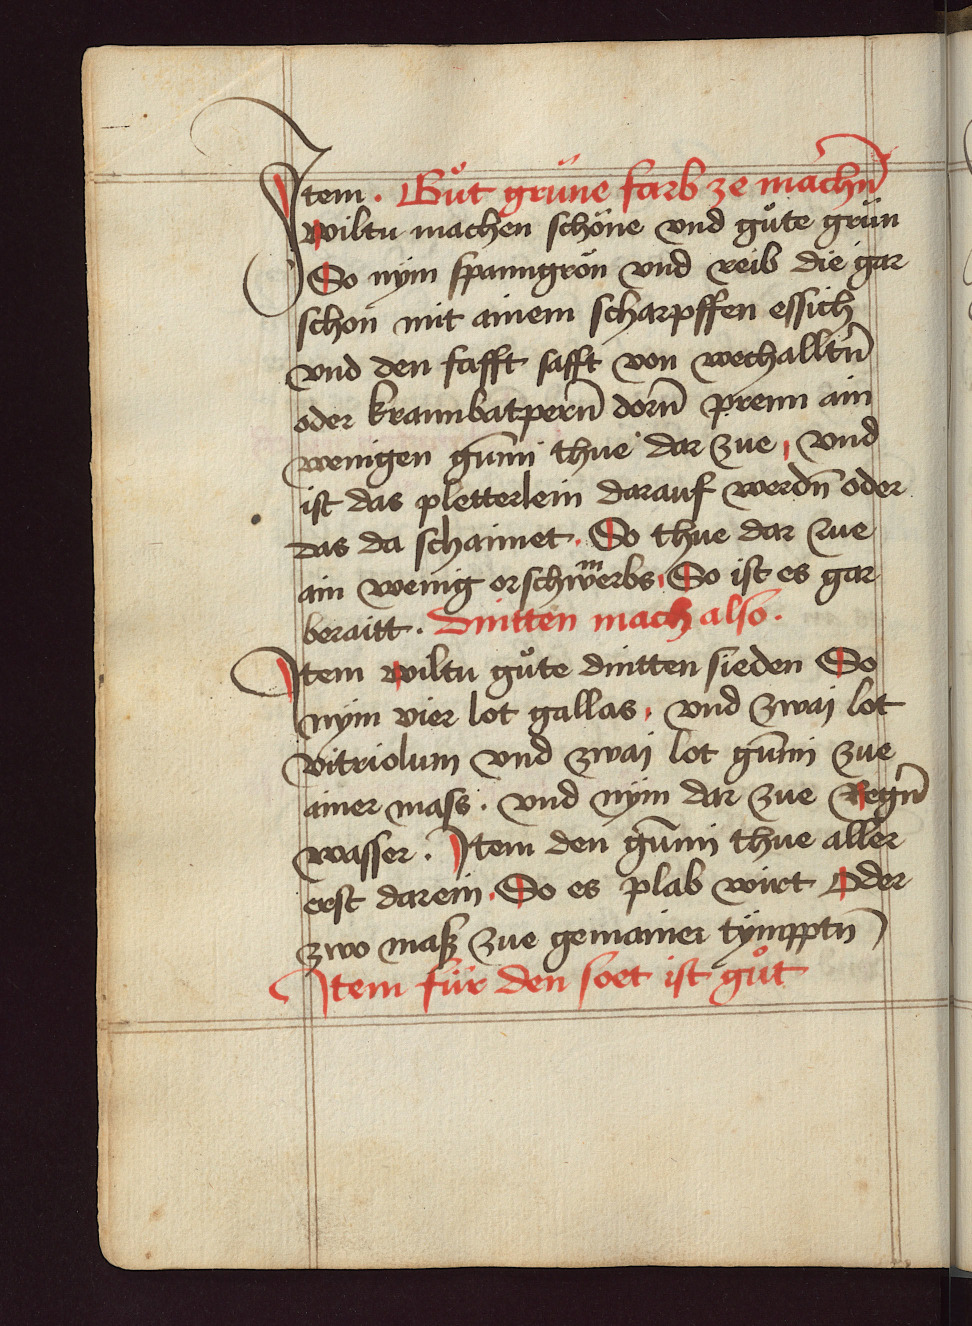 Item. Gůt grüne farb ze machn̄
wiltu machen schöne vnd gůte grün
So nym spanngrön vnd reib die gar
schon mit ainem scharpffen essich
vnd den safft safft von wechalltn̄
oder krannbatpern̄ dorn̄ prenn ain
wenigen gum̄i thue dar zue, vnd
ist das pletterlein darauf werdn̄ oder
das da schaimet. So thue dar zue
ain wenig So ist es gar
beraitt. Dnitten mach also.
Item wiltu gůte dnitten sieden So
nym vier lot gallas, vnd zwai lot
vitriolum vnd zwai lot gum̄i zue
ainer mass. vnd nym dar zue Regn̄
wasser. Item den gum̄i thue aller
erst darein. So es plab wirt Oder
zwo maß zue gemainer tÿmpptn̄
Item für den soet ist gůt